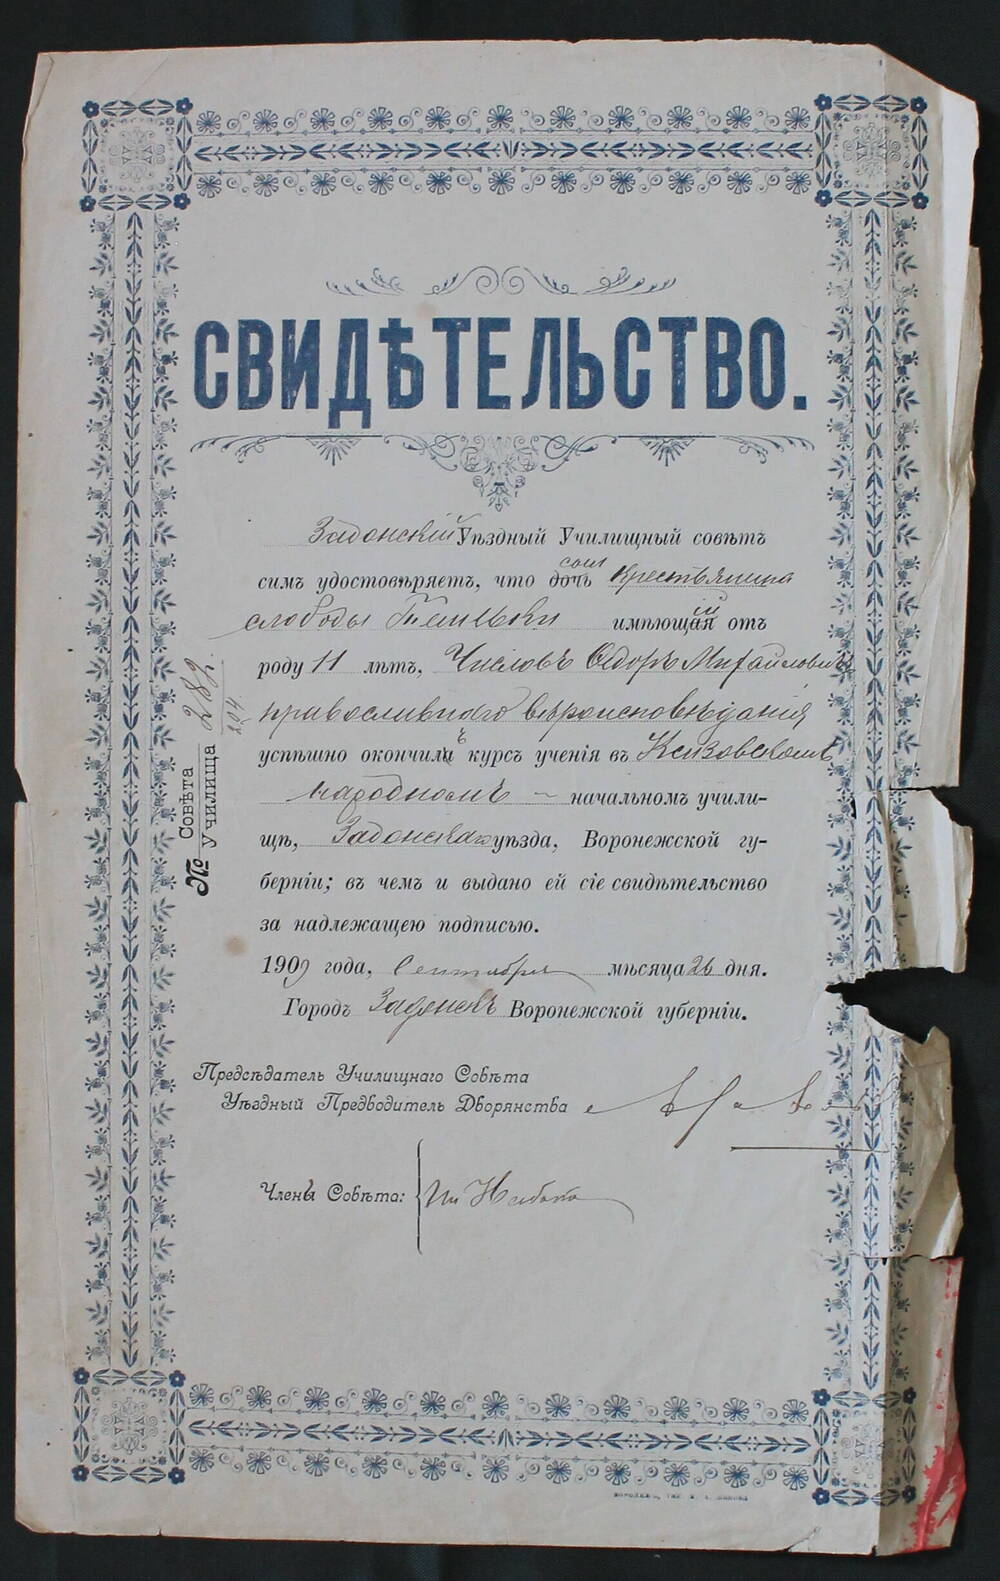 СВИДѢТЕЛЬСТВО.
Задонскій Уѣздный Училищный совѣтъ
сынъ
симъ удостовѣряетъ, что дочь крестьянина
слободы имѣющій отъ
роду 11 лѣтъ, Числовъ Ѳедоръ Михайловичъ
православнаго вѣроисповѣданія
успѣшно окончилъ курсъ ученія въ Ксизовскомъ
народномъ – начальномъ учили-
щѣ, Задонскаго уѣзда, Воронежской гу-
берніи; въ чемъ и выдано ей сіе свидѣтельство
за надлежащею подписью.
1909 года, Сентября мѣсяца 26 дня.
Городъ Задонскъ Воронежской губерніи.
№ Совѣта 289
Училища 204
Предсѣдатель Училищнаго Совѣта
Уѣздный Предводитель Дворянства
Члены Совѣта: